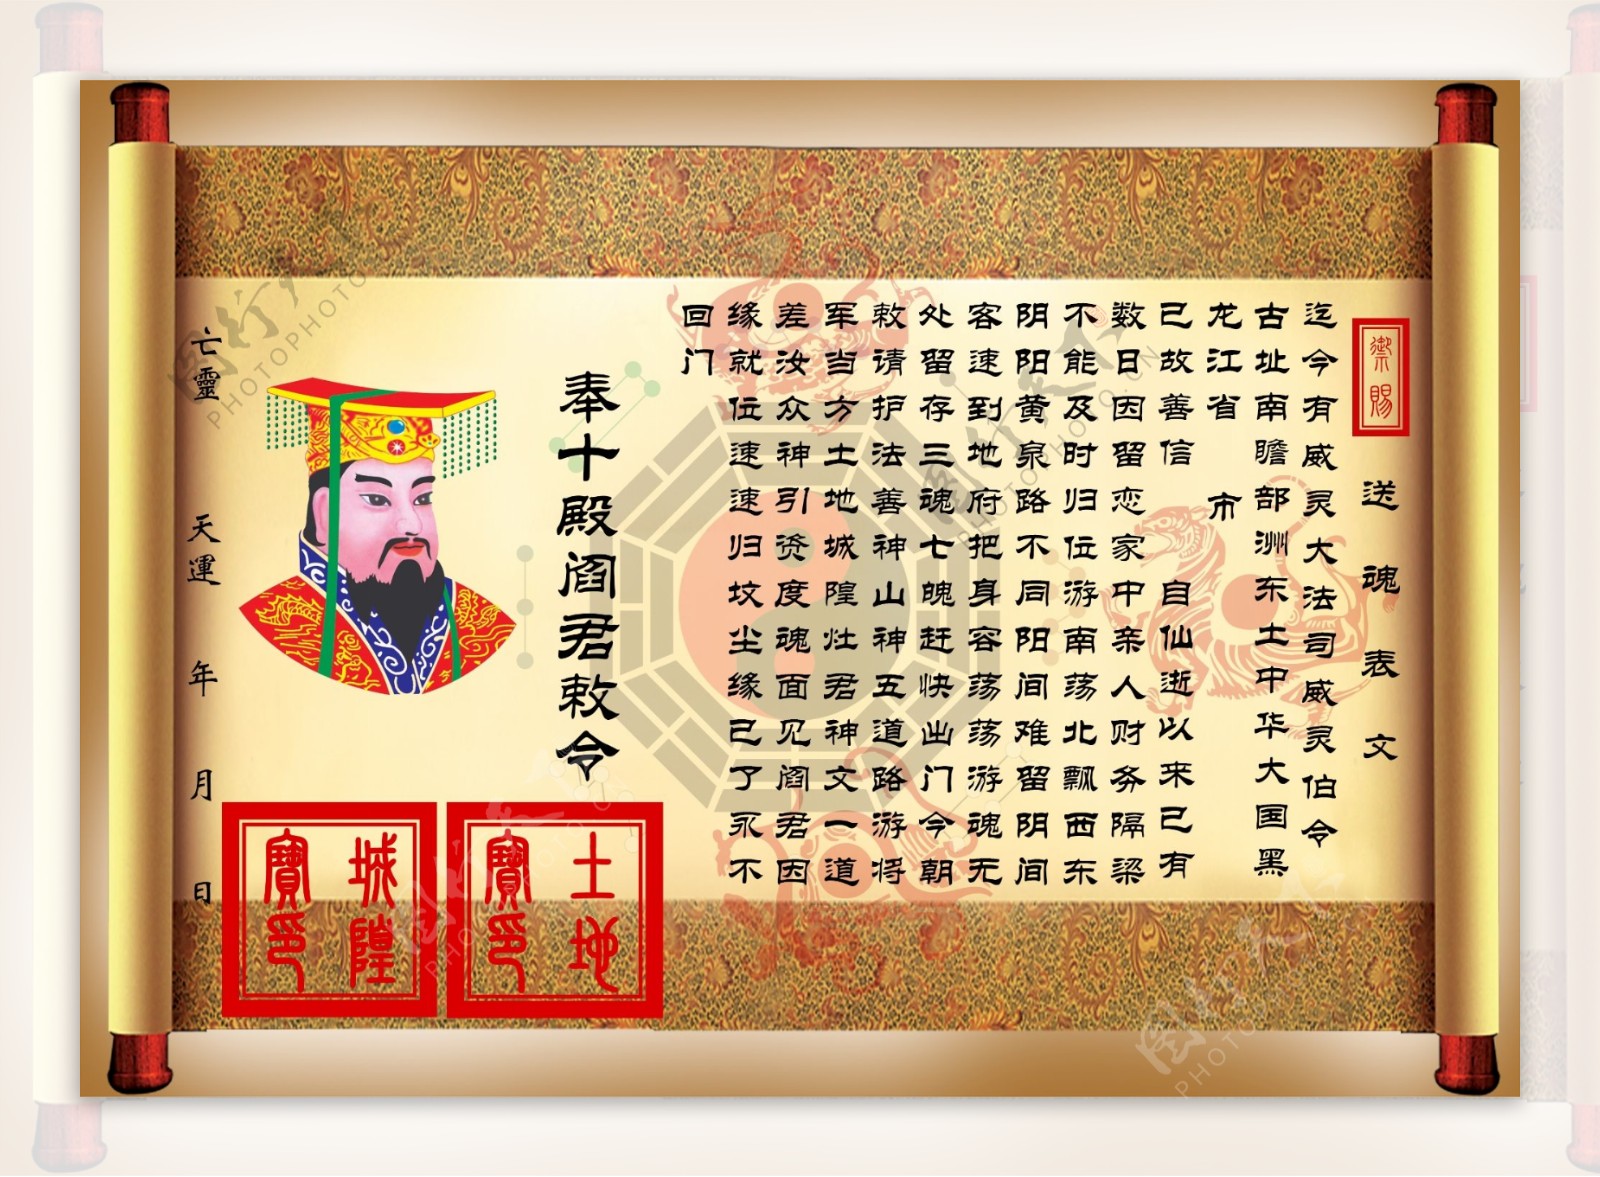 御赐
送魂表文
迄今有威灵大法司威灵伯令
古址南瞻部洲东土中华大国黑
龙江省 市
已故善信 自仙逝以来已有
数日因留恋家中亲人财务隔梁
不能及时归位游南荡北飘西东
阴阳黄泉路不同阳间难留阴间
客速到地府把身容荡荡游魂无
处留存三魂七魄赶快出门今朝
敕请护法善神山神五道路游将
军当方土地城隍灶君神文一道
差汝众神引资度魂面见阎君因
缘就位速速归坟尘缘已了永不
回门
奉十殿阎君敕令
土地
寶印
城隍
寶印
亡靈 天運 年 月 日